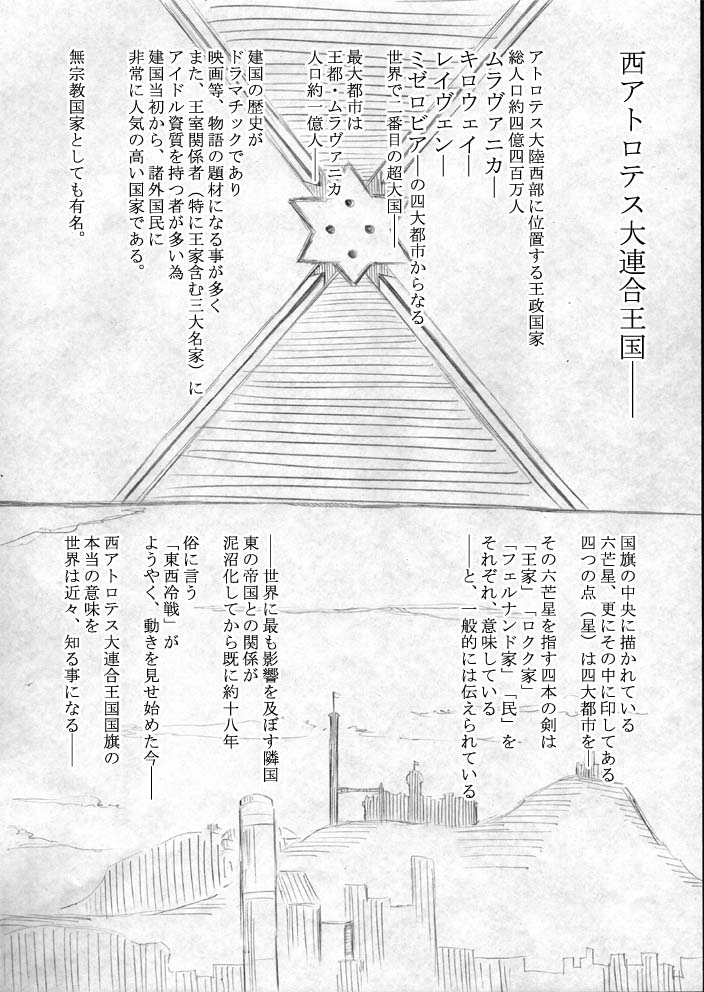 西アトロテス大連合王国――
アトロテス大陸西部に位置する王政国家
総人口約四億四百万人
ムラヴァニカ―
キロウェイ―
レイヴェン―
ミゼロビア――の四大都市からなる
世界で二番目の超大国――
最大都市は
王都・ムラヴァニカ
人口約一億人――
建国の歴史が
ドラマチックであり
映画等、物語の題材になる事が多く
また、王室関係者（特に王家含む三大名家）に
アイドル資質を持つ者が多い為
建国当初から、諸外国民に
非常に人気の高い国家である。
無宗教国家としても有名。
国旗の中央に描かれている
六芒星、更にその中に印してある
四つの点（星）は四大都市を――
その六芒星を指す四本の剣は
「王家」「ロクク家」
「フェルナンド家」「民」を
それぞれ、意味している
――と、一般的には伝えられている
――世界に最も影響を及ぼす隣国
東の帝国との関係が
泥沼化してから既に約十八年
俗に言う
「東西冷戦」が
ようやく、動きを見せ始めた今――
西アトロテス大連合王国国旗の
本当の意味を
世界は近々、知る事になる――